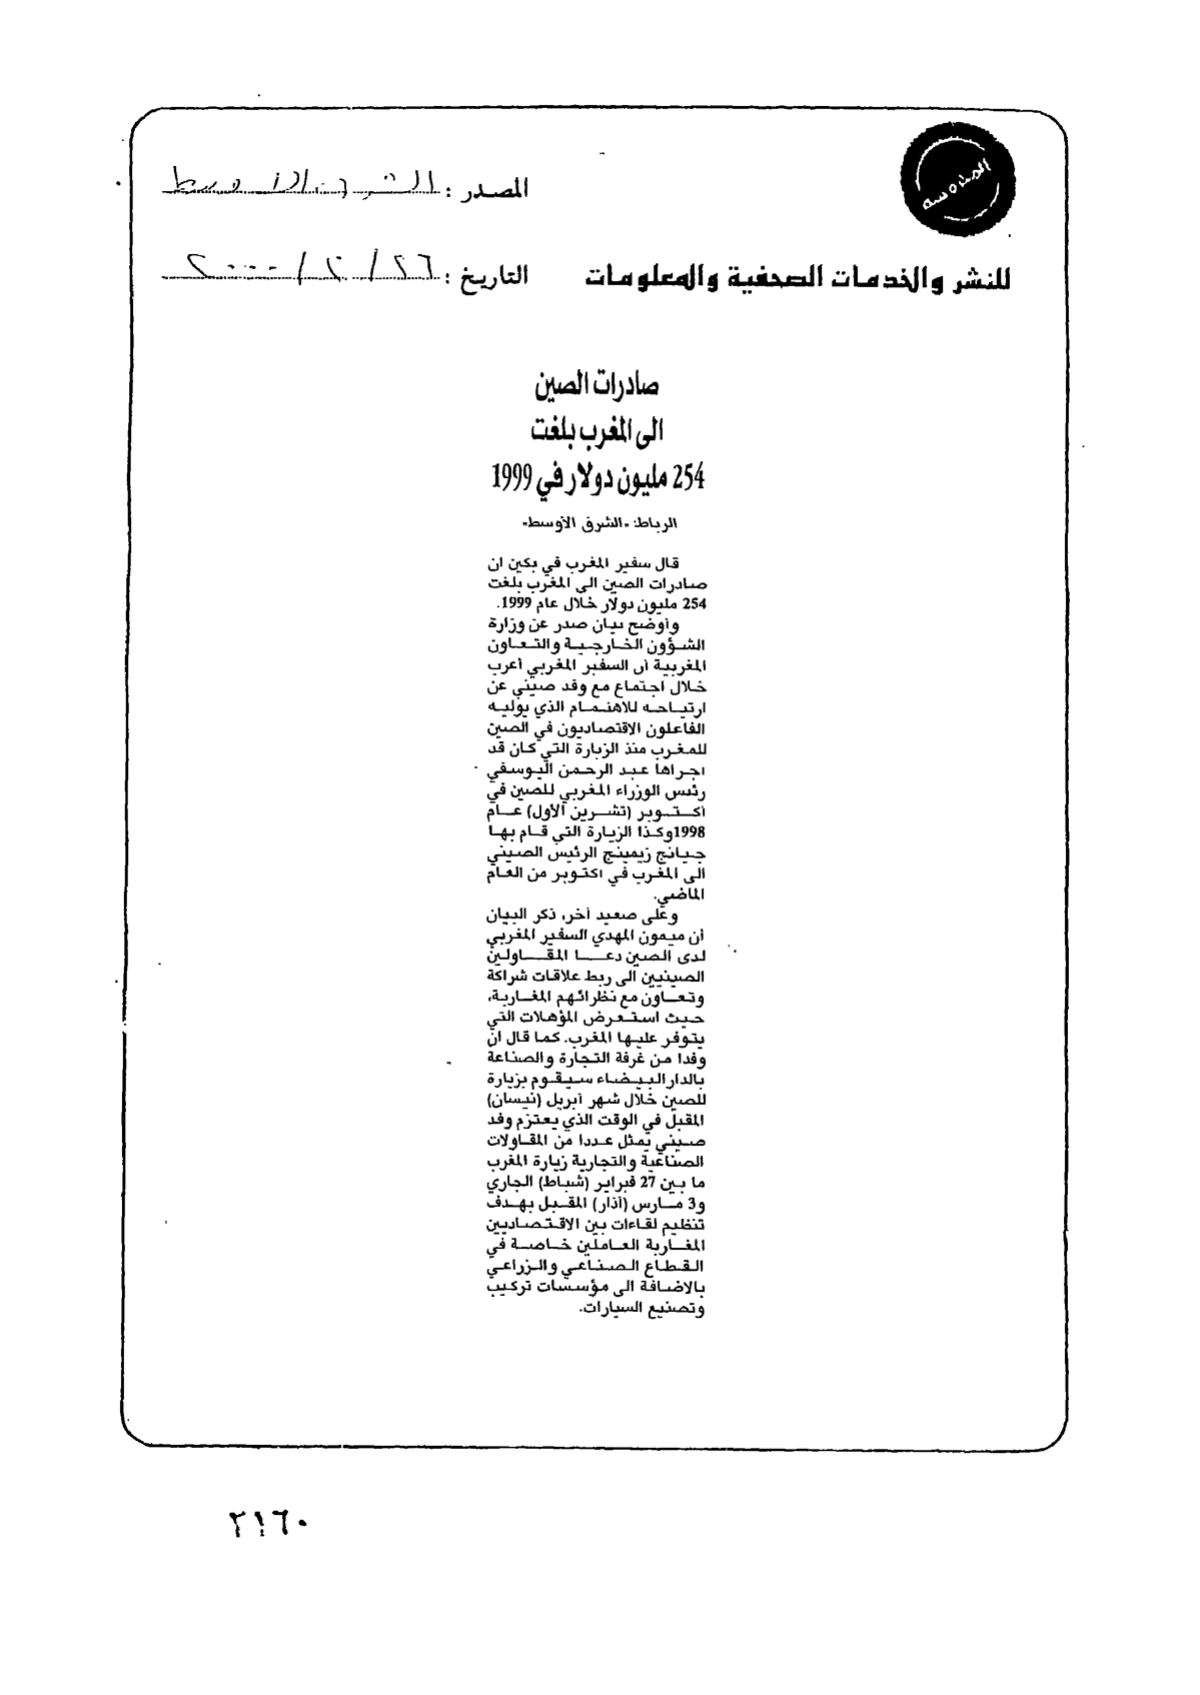 المحروسه
المصدر : الشرق الأوسط
للنشر والخدمات الصحفية والمعلومات
التاريخ : ٢٦ / ٢ / ٢٠٠٠
صادرات الصين
الى المغرب بلغت
254 مليون دولار في 1999
الرباط: «الشرق الأوسط»
قال سفير المغرب في بكين ان
صادرات الصين الى المغرب بلغت
254 مليون دولار خلال عام 1999.
وأوضح بيان صدر عن وزارة
الشؤون الخارجية والتعاون
المغربية أن السفير المغربي أعرب
خلال اجتماع مع وفد صيني عن
ارتياحه للاهتمام الذي يوليه
الفاعلون الاقتصاديون في الصين
للمغرب منذ الزيارة التي كان قد
اجراها عبد الرحمن اليوسفي
رئيس الوزراء المغربي للصين في
أكتوبر (تشرين الأول) عام
1998وكذا الزيارة التي قام بها
جيانج زيمينج الرئيس الصيني
الى المغرب في اكتوبر من العام
الماضي.
وعلى صعيد آخر، ذكر البيان
أن ميمون المهدي السفير المغربي
لدى الصين دعا المقاولين
الصينيين الى ربط علاقات شراكة
وتعاون مع نظرائهم المغاربة،
حيث استعرض المؤهلات التي
يتوفر عليها المغرب. كما قال ان
وفدا من غرفة التجارة والصناعة
بالدار البيضاء سيقوم بزيارة
للصين خلال شهر أبريل (نيسان)
المقبل في الوقت الذي يعتزم وفد
صيني يمثل عددا من المقاولات
الصناعية والتجارية زيارة المغرب
ما بين 27 فبراير (شباط) الجاري
و3 مارس (آذار) المقبل بهدف
تنظيم لقاءات بين الاقتصاديين
المغاربة العاملين خاصة في
القطاع الصناعي والزراعي
بالاضافة الى مؤسسات تركيب
وتصنيع السيارات.
٢١٦٠